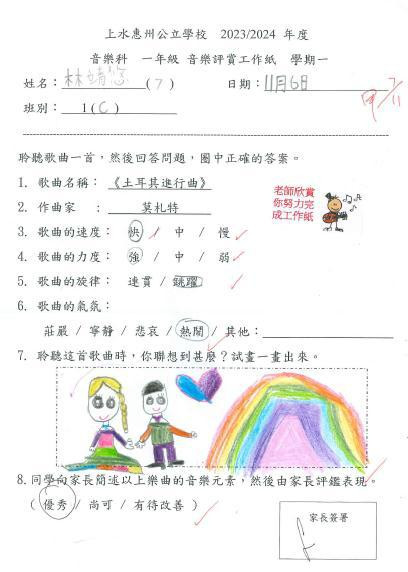 上水惠州公立學校 2023/2024 年度
音樂科 一年級 音樂評賞工作紙 學期一
姓名： 林靖悠 ( 7 ) 日期： 11月6日
7/11
班別： 1 ( C )
聆聽歌曲一首，然後回答問題，圈中正確的答案。
1. 歌曲名稱： 《土耳其進行曲》
2. 作曲家 ： 莫札特
老師欣賞
你努力完
成工作紙
3. 歌曲的速度： 快 / 中 / 慢
4. 歌曲的力度： 強 / 中 / 弱
5. 歌曲的旋律： 連貫 / 跳躍
6. 歌曲的氣氛：
莊嚴 / 寧靜 / 悲哀 / 熱鬧 / 其他：
7. 聆聽這首歌曲時，你聯想到甚麼？試畫一畫出來。
8. 同學向家長簡述以上樂曲的音樂元素，然後由家長評鑑表現。
( 優秀 / 尚可 / 有待改善 )
家長簽署